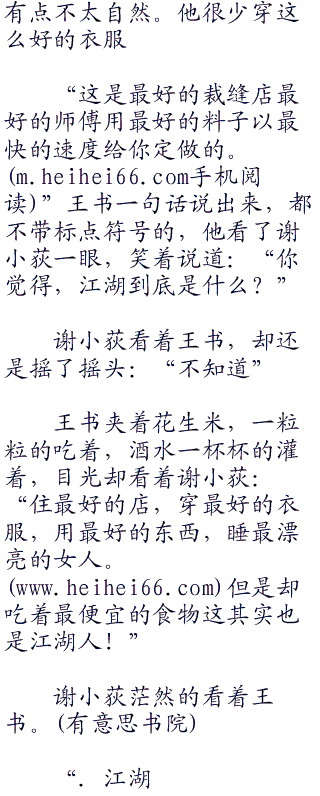 有点不太自然。他很少穿这
么好的衣服
“这是最好的裁缝店最
好的师傅用最好的料子以最
快的速度给你定做的。
(m.heihei66.com手机阅
读)”王书一句话说出来，都
不带标点符号的，他看了谢
小荻一眼，笑着说道：“你
觉得，江湖到底是什么？”
谢小荻看着王书，却还
是摇了摇头：“不知道”
王书夹着花生米，一粒
粒的吃着，酒水一杯杯的灌
着，目光却看着谢小荻：
“住最好的店，穿最好的衣
服，用最好的东西，睡最漂
亮的女人。
(www.heihei66.com)但是却
吃着最便宜的食物这其实也
是江湖人！”
谢小荻茫然的看着王
书。(有意思书院)
“．江湖